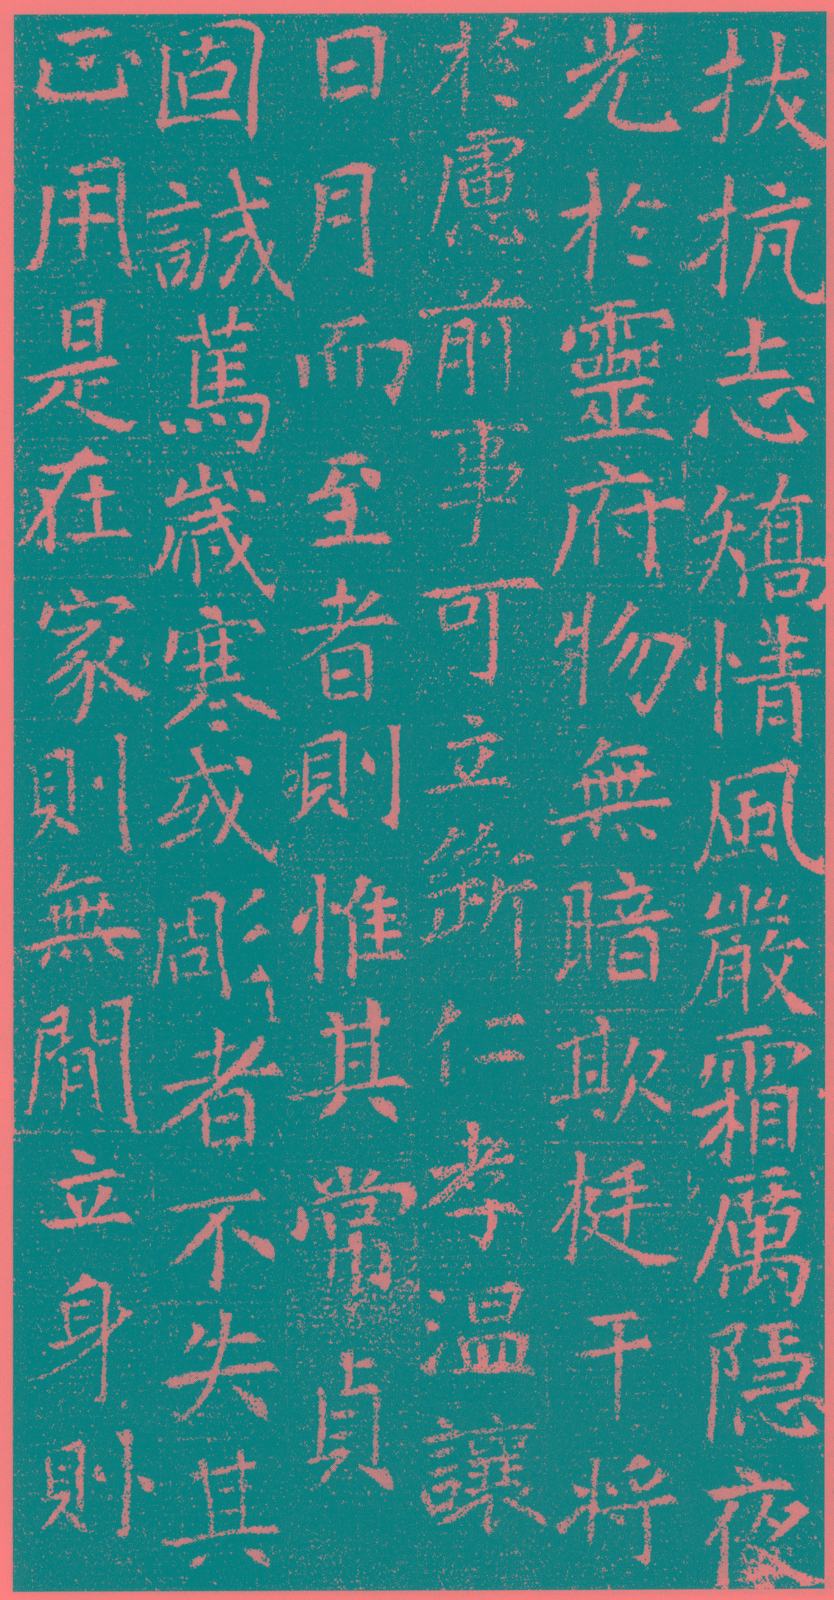 拔抗志矯情風嚴霜厲隱夜
光於靈府物無暗欺挺干将
於慮前事可立斷仁孝温讓
日月而至者則惟其常貞
固誠蔦歳寒或彫者不失其
正用是在家則無間立身則